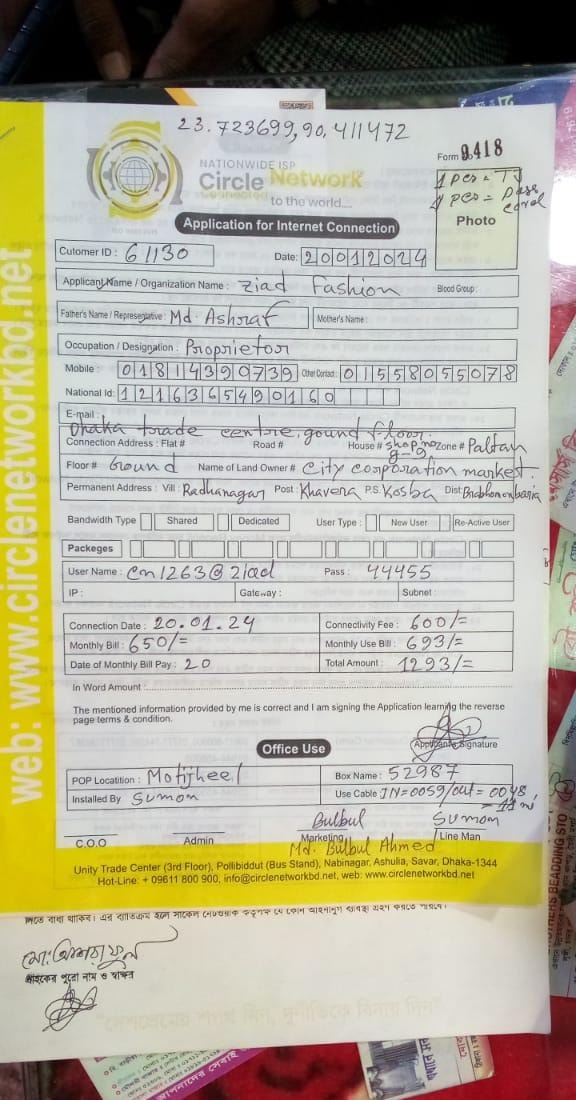 23.723699,90.411472
NATIONWIDE ISP
Circle Network
Connected to the world....
Form 9418
1 pcs = TJ
1 pcs = pass
Photo
Application for Internet Connection
Cutomer ID : 61130 Date: 20012024
Applicant Name / Organization Name : Ziad Fashion Blood Group :
Father's Name / Represetative : Md. Ashraf Mother's Name :
Occupation / Designation : Proprietor
Mobile : 01814390739 Other Contact : 01558055078
National Id: 1216365490160
E-mail :
Dhaka trade centre, gound floor.
Connection Address : Flat # Road # House # Shop no Zone # Paltan
Floor # Ground Name of Land Owner # City corporation market.
Permanent Address : Vill : Radhanagar Post : Kharera P.S. Kosba Dist: Brabhomonbaria
Bandwidth Type Shared Dedicated User Type : New User Re-Active User
Packeges
User Name : cn1263@ziad Pass : 44455
IP : Gateway : Subnet :
Connection Date : 20.01.24 Connectivity Fee : 600/=
Monthly Bill : 650/= Monthly Use Bill : 693/=
Date of Monthly Bill Pay : 20 Total Amount : 1293/=
In Word Amount :
The mentioned information provided by me is correct and I am signing the Application learning the reverse
page terms & condition.
Applicants Signature
Office Use
POP Locatition : Motijheel Box Name : 52987
Installed By Sumon Use Cable IN=0059/Out=0048
Bulbul Sumon
C.O.O Admin Marketing Line Man
Md. Bulbul Ahmed
Unity Trade Center (3rd Floor), Pollibiddut (Bus Stand), Nabinagar, Ashulia, Savar, Dhaka-1344
Hot-Line: + 09611 800 900, info@circlenetworkbd.net, web: www.circlenetworkbd.net
web: www.circlenetworkbd.net
গ্রাহকের পুরো নাম ও স্বাক্ষর
"দেশপ্রেমের শপথ নিন, দুর্নীতিকে বিদায় দিন"
আপনাদের সেবাই
OTHERS BEADDING STO